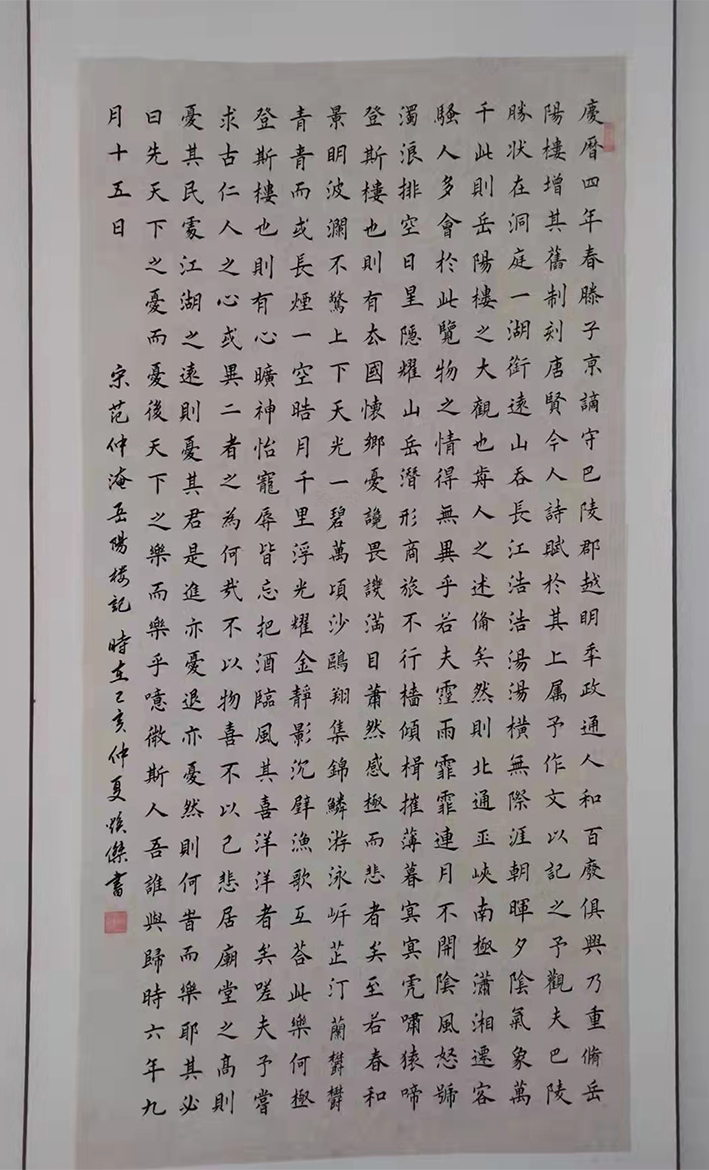 慶曆四年春滕子京謫守巴陵郡越明秊政通人和百廢俱興乃重脩岳
陽樓增其舊制刻唐賢今人詩賦於其上属予作文以記之予觀夫巴陵
勝狀在洞庭一湖銜遠山吞長江浩浩湯湯橫無際涯朝暉夕陰氣象萬
千此則岳陽樓之大觀也歬人之述俻矣然則北通巫峽南極瀟湘遷客
騷人多會於此覽物之情得無異乎若夫霪雨霏霏連月不開陰風怒號
濁浪排空日星隱耀山岳潛形商旅不行檣傾楫摧薄暮冥冥虎嘯猿啼
登斯樓也則有去國懷鄉憂讒畏譏滿目蕭然感極而悲者矣至若春和
景明波瀾不驚上下天光一碧萬頃沙鷗翔集錦鱗游泳岸芷汀蘭鬱鬱
青青而或長煙一空皓月千里浮光耀金靜影沉璧漁歌互荅此樂何極
登斯樓也則有心曠神怡寵辱皆忘把酒臨風其喜洋洋者矣嗟夫予嘗
求古仁人之心或異二者之為何哉不以物喜不以己悲居廟堂之高則
憂其民處江湖之遠則憂其君是進亦憂退亦憂然則何旹而樂耶其必
曰先天下之憂而憂後天下之樂而樂乎噫微斯人吾誰與歸時六年九
月十五日 宋范仲淹岳陽楼記 時在己亥仲夏傑書